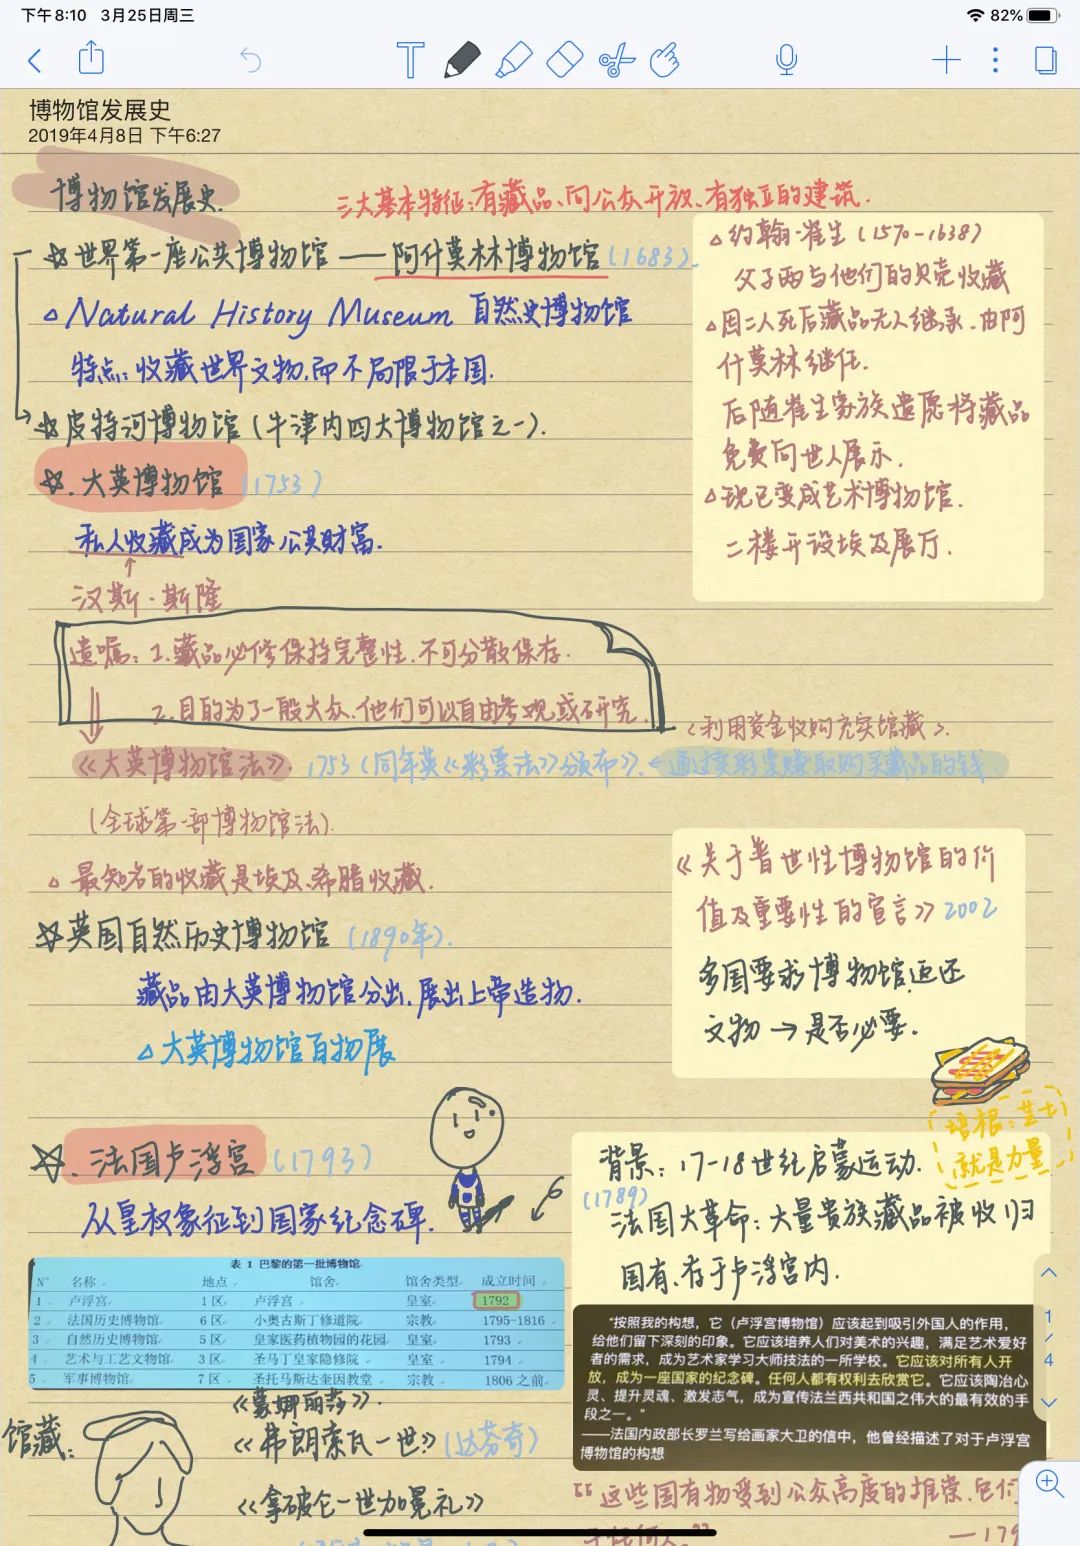 下午8:10 3月25日周三
82%
博物馆发展史
2019年4月8日 下午6:27
博物馆发展史.
三大基本特征:有藏品、向公众开放、有独立的建筑.
☆世界第一座公共博物馆 —— 阿什莫林博物馆(1683).
△Natural History Museum 自然史博物馆
特点:收藏世界文物,而不局限于本国.
☆皮特河博物馆(牛津内四大博物馆之一).
△约翰·崔生(1570-1638)
父子两与他们的贝壳收藏
△因二人死后藏品无人继承.由阿
什莫林继任.
后随崔生家族遗愿将藏品
免费向世人展示.
△现已变成艺术博物馆.
二楼开设埃及展厅.
☆.大英博物馆(1753)
私人收藏成为国家公共财富.
汉斯·斯隆
遗嘱:1.藏品必修保持完整性.不可分散保存.
2.目的为了一般大众.他们可以自由参观或研究.
<利用资金收购充实馆藏>.
《大英博物馆法》. 1753(同年英《彩票法》颁布).←通过卖彩票赚取购买藏品的钱.
(全球第一部博物馆法).
△最知名的收藏是埃及、希腊收藏.
《关于普世性博物馆的价
值及重要性的宣言》2002
多国要求博物馆返还
文物→是否必要.
☆英国自然历史博物馆(1890年).
藏品由大英博物馆分出.展出上帝造物.
△大英博物馆百物展
培根:芝士
就是力量
☆.法国卢浮宫(1793)
从皇权象征到国家纪念碑.
背景:17-18世纪启蒙运动.
(1789)
法国大革命:大量贵族藏品被收归
国有.存于卢浮宫内.
表 1 巴黎的第一批博物馆
N° 名称 地点 馆舍 馆舍类型 成立时间
1 卢浮宫 1 区 卢浮宫 皇室 1792
2 法国历史博物馆 6 区 小奥古斯丁修道院 宗教 1795-1816
3 自然历史博物馆 5 区 皇家医药植物园的花园 皇室 1793
4 艺术与工艺文物馆 3 区 圣马丁皇家隐修院 皇室 1794
5 军事博物馆 7 区 圣托马斯达奎因教堂 宗教 1806 之前
“按照我的构想,它(卢浮宫博物馆)应该起到吸引外国人的作用,
给他们留下深刻的印象。它应该培养人们对美术的兴趣,满足艺术爱好
者的需求,成为艺术家学习大师技法的一所学校。它应该对所有人开
放,成为一座国家的纪念碑。任何人都有权利去欣赏它。它应该陶冶心
灵、提升灵魂、激发志气,成为宣传法兰西共和国之伟大的最有效的手
段之一。”
——法国内政部长罗兰写给画家大卫的信中,他曾经描述了对于卢浮宫
博物馆的构想
1
/
4
馆藏:
《蒙娜丽莎》.
《弗朗索瓦一世》(达芬奇)
《拿破仑一世加冕礼》
“这些国有物受到公众高度的推崇.它们